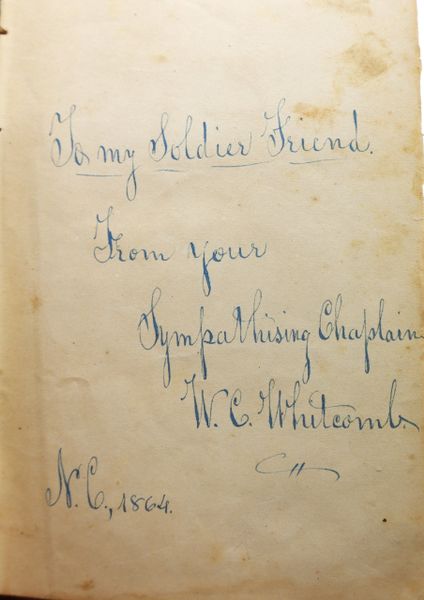 To my Soldier Friend.
From your
Sympathising Chaplain
W. C. Whitcomb
N.C., 1864.